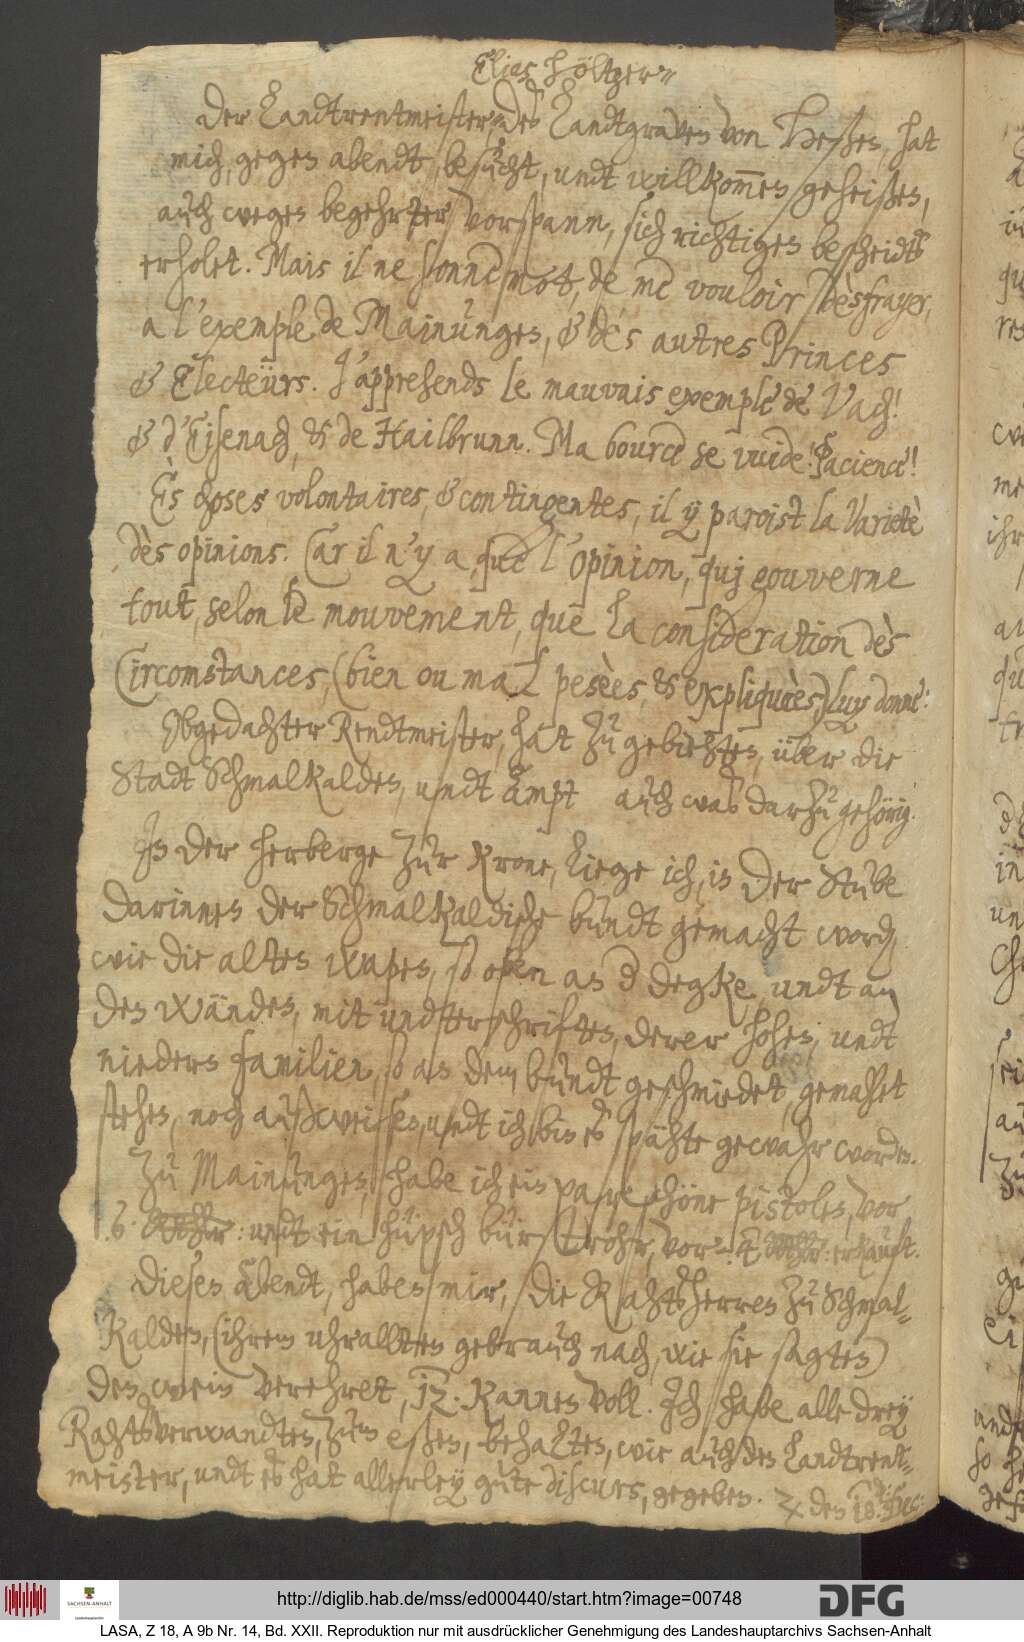 Elias Höltzer
Der Landtrentmeister des Landtgraven von Heßen, hat
mich, gegen abendt, besucht, undt willkommen geheißen,
auch wegen begehrter vorspann, sich richtigen bescheidts
erholet. Mais il ne sonne mot, de me vouloir dèsfrayer,
a l'exemple de Mainungen, & dès autres Princes
& Electeurs. J'apprehende le mauvais exemple de Vach!
& d'Eisenach, & de Hailbrunn. Ma bource se vuide! Pacience!
Ès choses volontaires, & contingentes, il y paroist la varietè
dès opinions. Car il n'y a, que l'opinion, quj gouverne
tout, selon le mouvement, que la consideration dès
Circomstances, (bien ou mal pesèes, & expliquèes) luy donne:
Obgedachter Rendtmeister, hat zu gebiehten, über die
Stadt Schmalkalden, undt Ampt auch was darzu gehörig.
In der herberge zur Krone, liege ich, in der Stube
darinnen der Schmalkaldische bundt gemacht worden
wie die alten wapen, so oben an der degke, undt an
den wänden, mit undterschriften, derer hohen, undt
niedern familien, so an dem bundt geschmiedet, gemahlt
stehen, noch außweisen, undt ich bin es spähte gewahr worden.
Zu Mainungen, habe ich ein paar schöne pistolen, vor
6 undt ein hüpsch bürschrohr, vor erkauft.
Diesen abendt, haben mir, die Rahtsherren zu Schmal-
kalden, (ihrem uhrallten gebrauch nach, wie sie sagten)
den wein verehret, 12: Kannen voll. Ich habe alle drey
Rahtsverwandten, zum eßen, behalten, wie auch den Landtrent-
meister, undt es hat allerley gute discurs, gegeben. den 18. Dec:
http://diglib.hab.de/mss/ed000440/start.htm?image=00748
SACHSEN-ANHALT
Landeshauptarchiv
DFG
LASA, Z 18, A 9b Nr. 14, Bd. XXII. Reproduktion nur mit ausdrücklicher Genehmigung des Landeshauptarchivs Sachsen-Anhalt